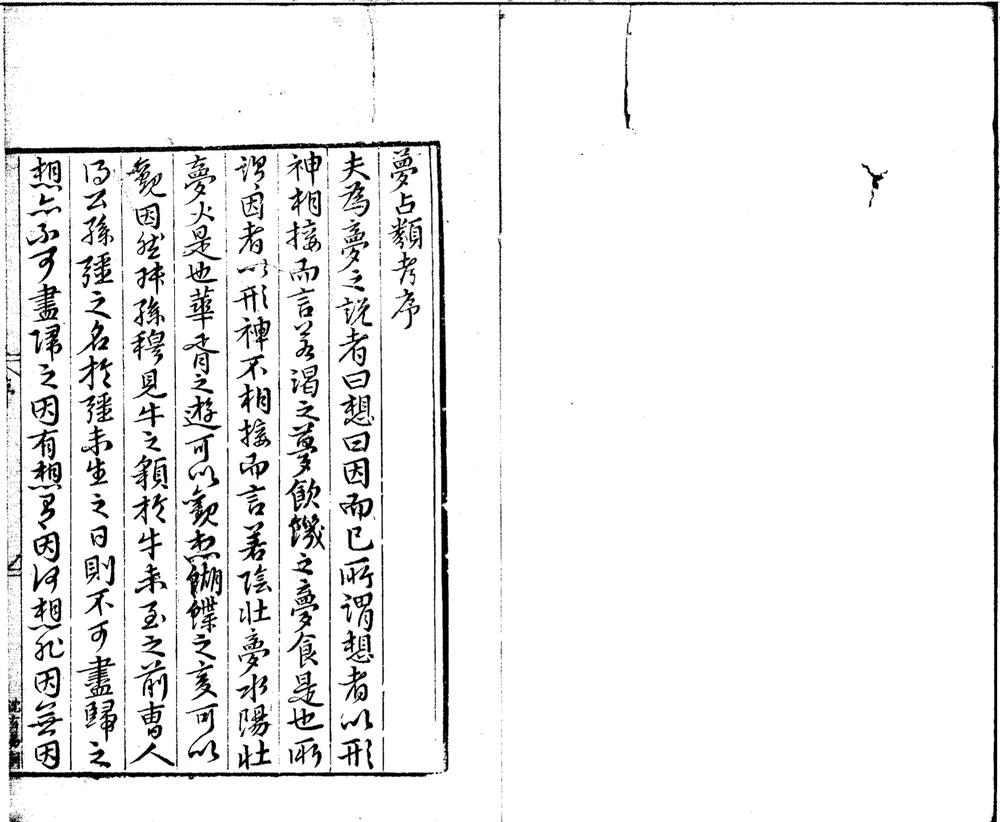 夢占類考序
夫為夢之說者曰想曰因而已所謂想者以形
神相接而言若渴之夢飲饑之夢食是也所
謂因者以形神不相接而言若陰壯夢水陽壯
夢火是也華胥之遊可以觀想蝴蝶之変可以
觀因然叔孫穆見牛之貌於牛未至之前曹人
得公孫彊之名於彊未生之日則不可盡歸之
想亦不可盡歸之因有想有因何想非因無因